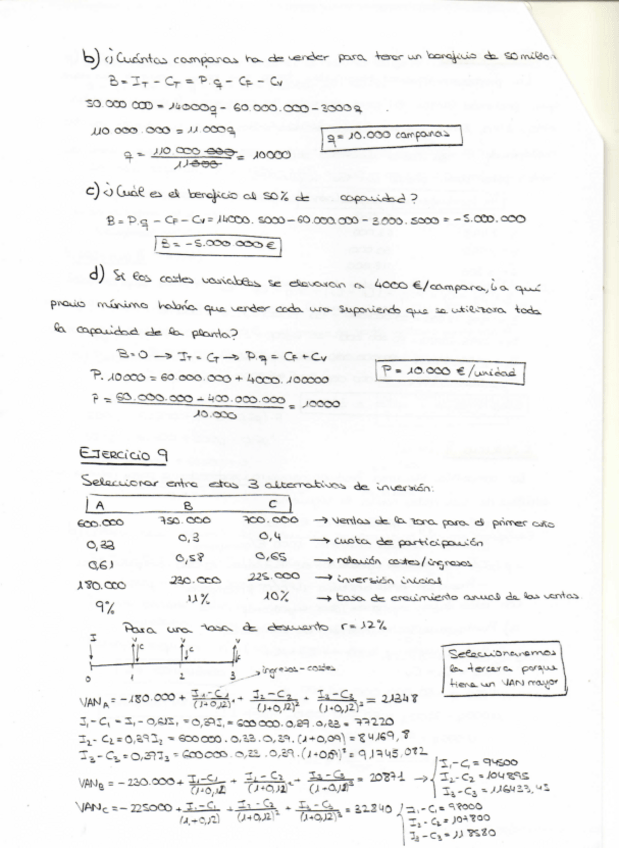 b) ¿Cuántas campanas ha de vender para tener un beneficio de 50 millo
B = IT - CT = P.q - CF - CV
50 000 000 = 14000q - 60.000.000 - 3000q
110 000.000 = 11 000q
q = 110 000 000 / 11000 = 10000
q = 10.000 campanas
c) ¿Cuál es el beneficio al 50% de capacidad?
B = P.q - CF - CV = 14000.5000 - 60.000.000 - 3.000.5000 = -5.000.000
B = -5.000 000 €
d) Si los costes variables se elevaran a 4000 €/campana, ¿a qué
precio mínimo habría que vender cada una suponiendo que se utilizara toda
la capacidad de la planta?
B=0 → IT = CT → P.q = CF + CV
P. 10000 = 60.000.000 + 4000.100000
P = 60.000.000 + 400.000.000 / 10.000 = 10000
P = 10.000 €/unidad
EJERCICIO 9
Seleccionar entre estas 3 alternativas de inversión:
A B C
600.000 750.000 700.000 → ventas de la zona para el primer año
0,33 0,3 0,4 → cuota de participación
0,61 0,58 0,65 → relación costes/ingresos
180.000 230.000 225.000 → inversión inicial
9% 11% 10% → tasa de crecimiento anual de las ventas
Para una tasa de descuento r = 12%
I V C V C V C
0 1 2 3
ingresos - costes
Seleccionaremos
la tercera porque
tiene un VAN mayor
VAN A = -180.000 + I1-C1/(1+0,12) + I2-C2/(1+0,12)² + I3-C3/(1+0,12)³ = 21348
I1-C1 = I1 - 0,61I1 = 0,39I1 = 600000.0,39.0,33 = 77220
I2-C2 = 0,39I2 = 600000.0,33.0,39.(1+0,09) = 84169,8
I3-C3 = 0,39I3 = 600000.0,33.0,39.(1+0,09)² = 91745,082
VAN B = -230.000 + I1-C1/(1+0,12) + I2-C2/(1+0,12)² + I3-C3/(1+0,12)³ = 20871 → I1-C1 = 94500
I2-C2 = 104895
I3-C3 = 116433,45
VAN C = -225000 + I1-C1/(1+0,12) + I2-C2/(1+0,12)² + I3-C3/(1+0,12)³ = 32840 I1-C1 = 98000
I2-C2 = 107800
I3-C3 = 118580